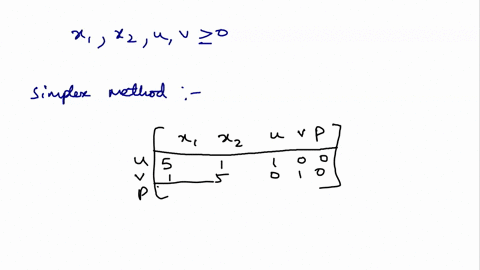 x₁, x₂, u, v ≥ 0
Simplex method :-
x₁ x₂ u v P
u 5 1 1 0 0
v 1 5 0 1 0
P